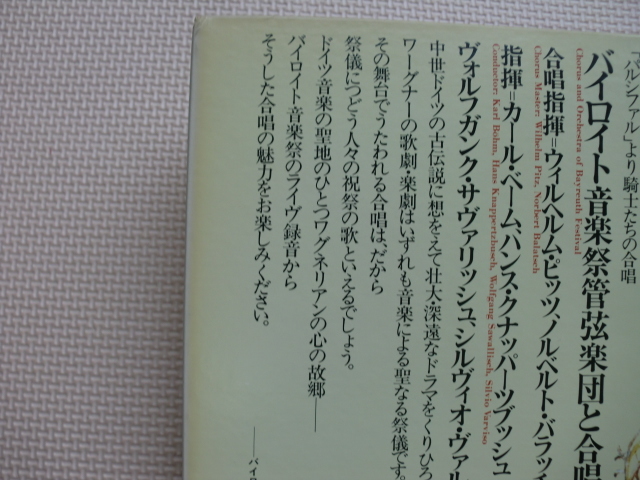 「パルシファル」より 騎士たちの合唱
バイロイト音楽祭管弦楽団と合唱
Chorus and Orchestra of Bayreuth Festival
合唱指揮=ウィルヘルム・ピッツ、ノルベルト・バラッチ
Chorus Master: Wilhelm Pitz, Norbert Balatsch
指揮=カール・ベーム、ハンス・クナッパーツブッシュ
Conductor: Karl Böhm, Hans Knappertsbusch, Wolfgang Sawallisch, Silvio Varviso
ヴォルフガンク・サヴァリッシュ、シルヴィオ・ヴァル
中世ドイツの古伝説に想をえて壮大深遠なドラマをくりひろ
ワーグナーの歌劇・楽劇はいずれも音楽による聖なる祭儀です。
その舞台でうたわれる合唱は、だから
祭儀につどう人々の祝祭の歌といえるでしょう。
ドイツ音楽の聖地のひとつワグネリアンの心の故郷——
バイロイト音楽祭のライヴ録音から
そうした合唱の魅力をお楽しみください。
——バイロ